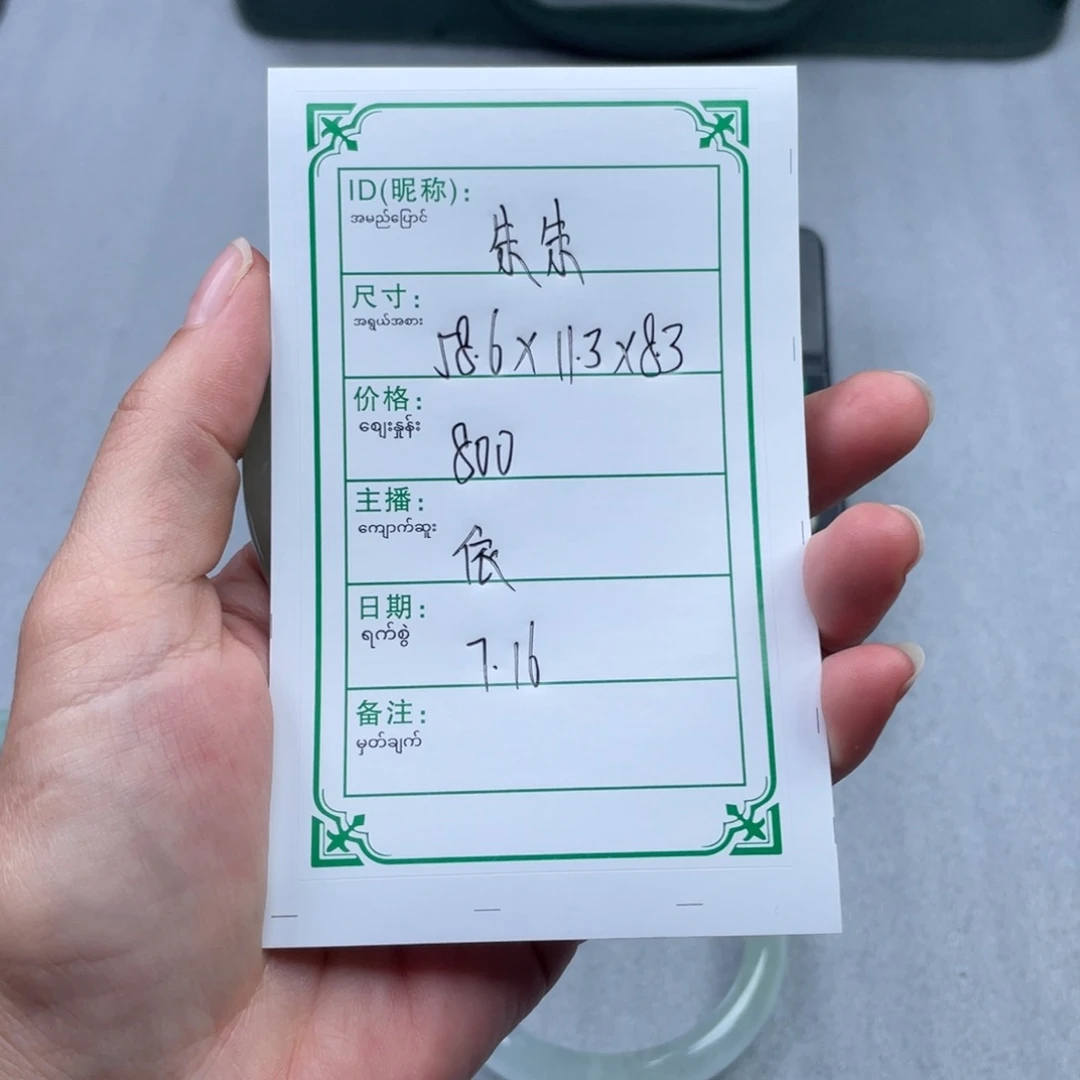 ID(昵称):
အမည်ပြောင်
朱朱
尺寸:
အရွယ်အစား
58.6×11.3×8.3
价格:
ဈေးနှုန်း
800
主播:
ကျောက်ဆူး
依
日期:
ရက်စွဲ
7.16
备注:
မှတ်ချက်